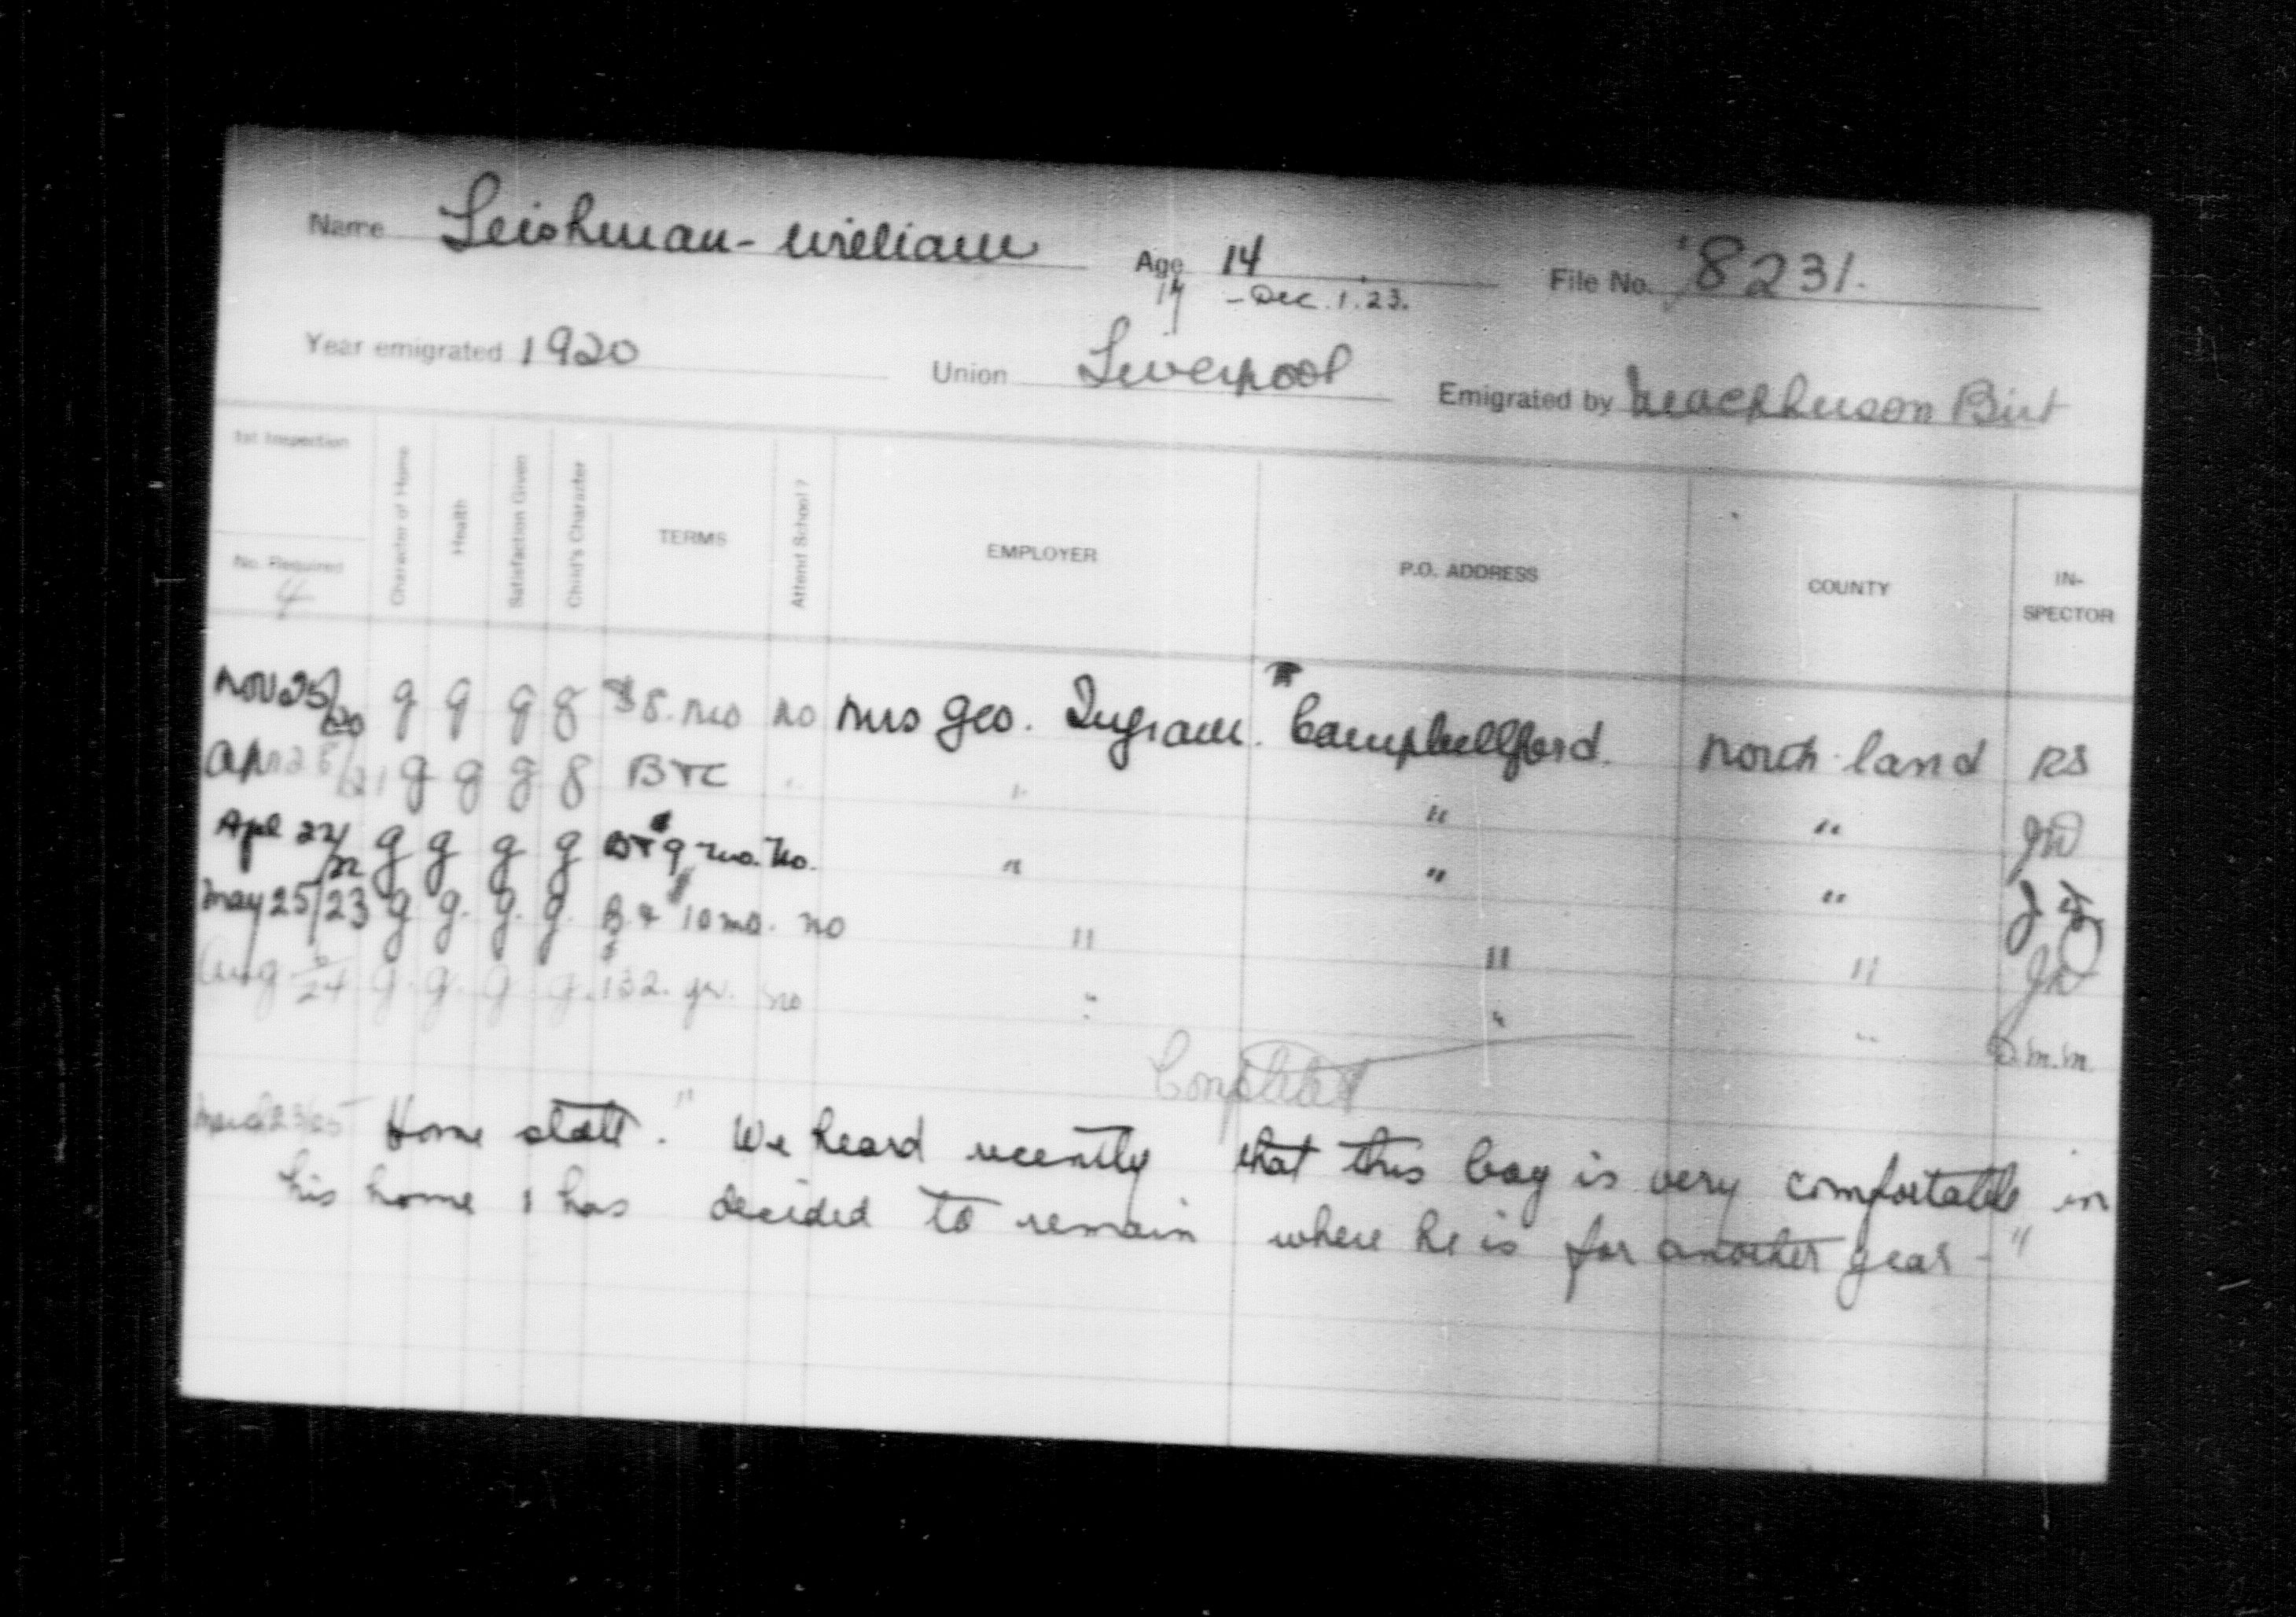 Name Leishman - William Age 14 File No. 8231.
17 - Dec. 1. 23.
Year emigrated 1920 Union Liverpool Emigrated by Macpherson Birt
1st Inspection
No. Required
4
Character of Home
Health
Satisfaction Given
Child's Character
TERMS
Attend School?
EMPLOYER
P.O. ADDRESS
COUNTY
IN-
SPECTOR
Nov 25/20 g g g g $8. mo no Mrs Geo. Ingram. Campbellford. North-land RS
Apr 28/21 g g g g B+C " " " JW
Apl 22/22 g g g g B+$9 mo. No. " " "
May 25/23 g g. g. g. B+$10 mo. no " " " JW
Aug 6/24 g. g. g g. $132. yr. no " " " D.M.M.
Completed
March 23/25 Home state. " We heard recently that this boy is very comfortable in
his home & has decided to remain where he is for another year - "